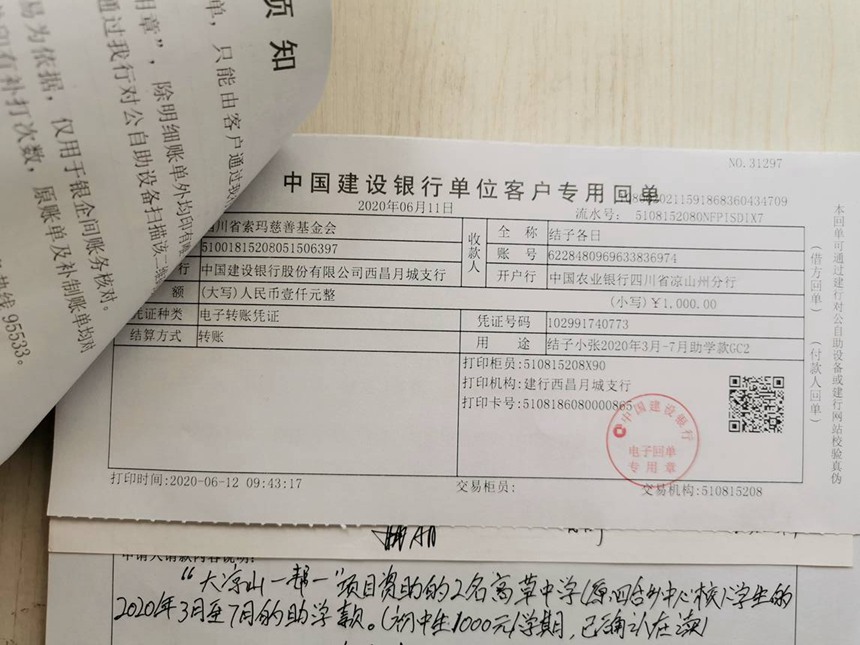 须知
单，只能由客户通过我
用章”，除明细账单外均印有
通过我行对公自助设备扫描该二维
易为依据，仅用于银企间账务核对。
印有补打次数，原账单及补制账单均对
热线95533。
NO.31297
中国建设银行单位客户专用回单
2020年06月11日
流水号： 5108152080NFPISDIX7
川省索玛慈善基金会
51001815208051506397
行 中国建设银行股份有限公司西昌月城支行
收款人
全 称 结子各日
账 号 6228480969633836974
开户行 中国农业银行四川省凉山州分行
额 (大写)人民币壹仟元整
(小写)￥1,000.00
凭证种类 电子转账凭证
凭证号码 102991740773
结算方式 转账
用 途 结子小张2020年3月-7月助学款GC2
打印柜员:510815208X90
打印机构:建行西昌月城支行
打印卡号:5108186080000865
中国建设银行
电子回单
专用章
打印时间:2020-06-12 09:43:17
交易柜员:
交易机构:510815208
本回单可通过建行对公自助设备或建行网站校验真伪
(借方回单)
(付款人回单)
申请人请款内容说明:
“大凉山一帮一”项目资助的2名高草中学(原四合乡中心校)学生的
2020年3月至7月的助学款。(初中生1000元/学期，已确认在读)